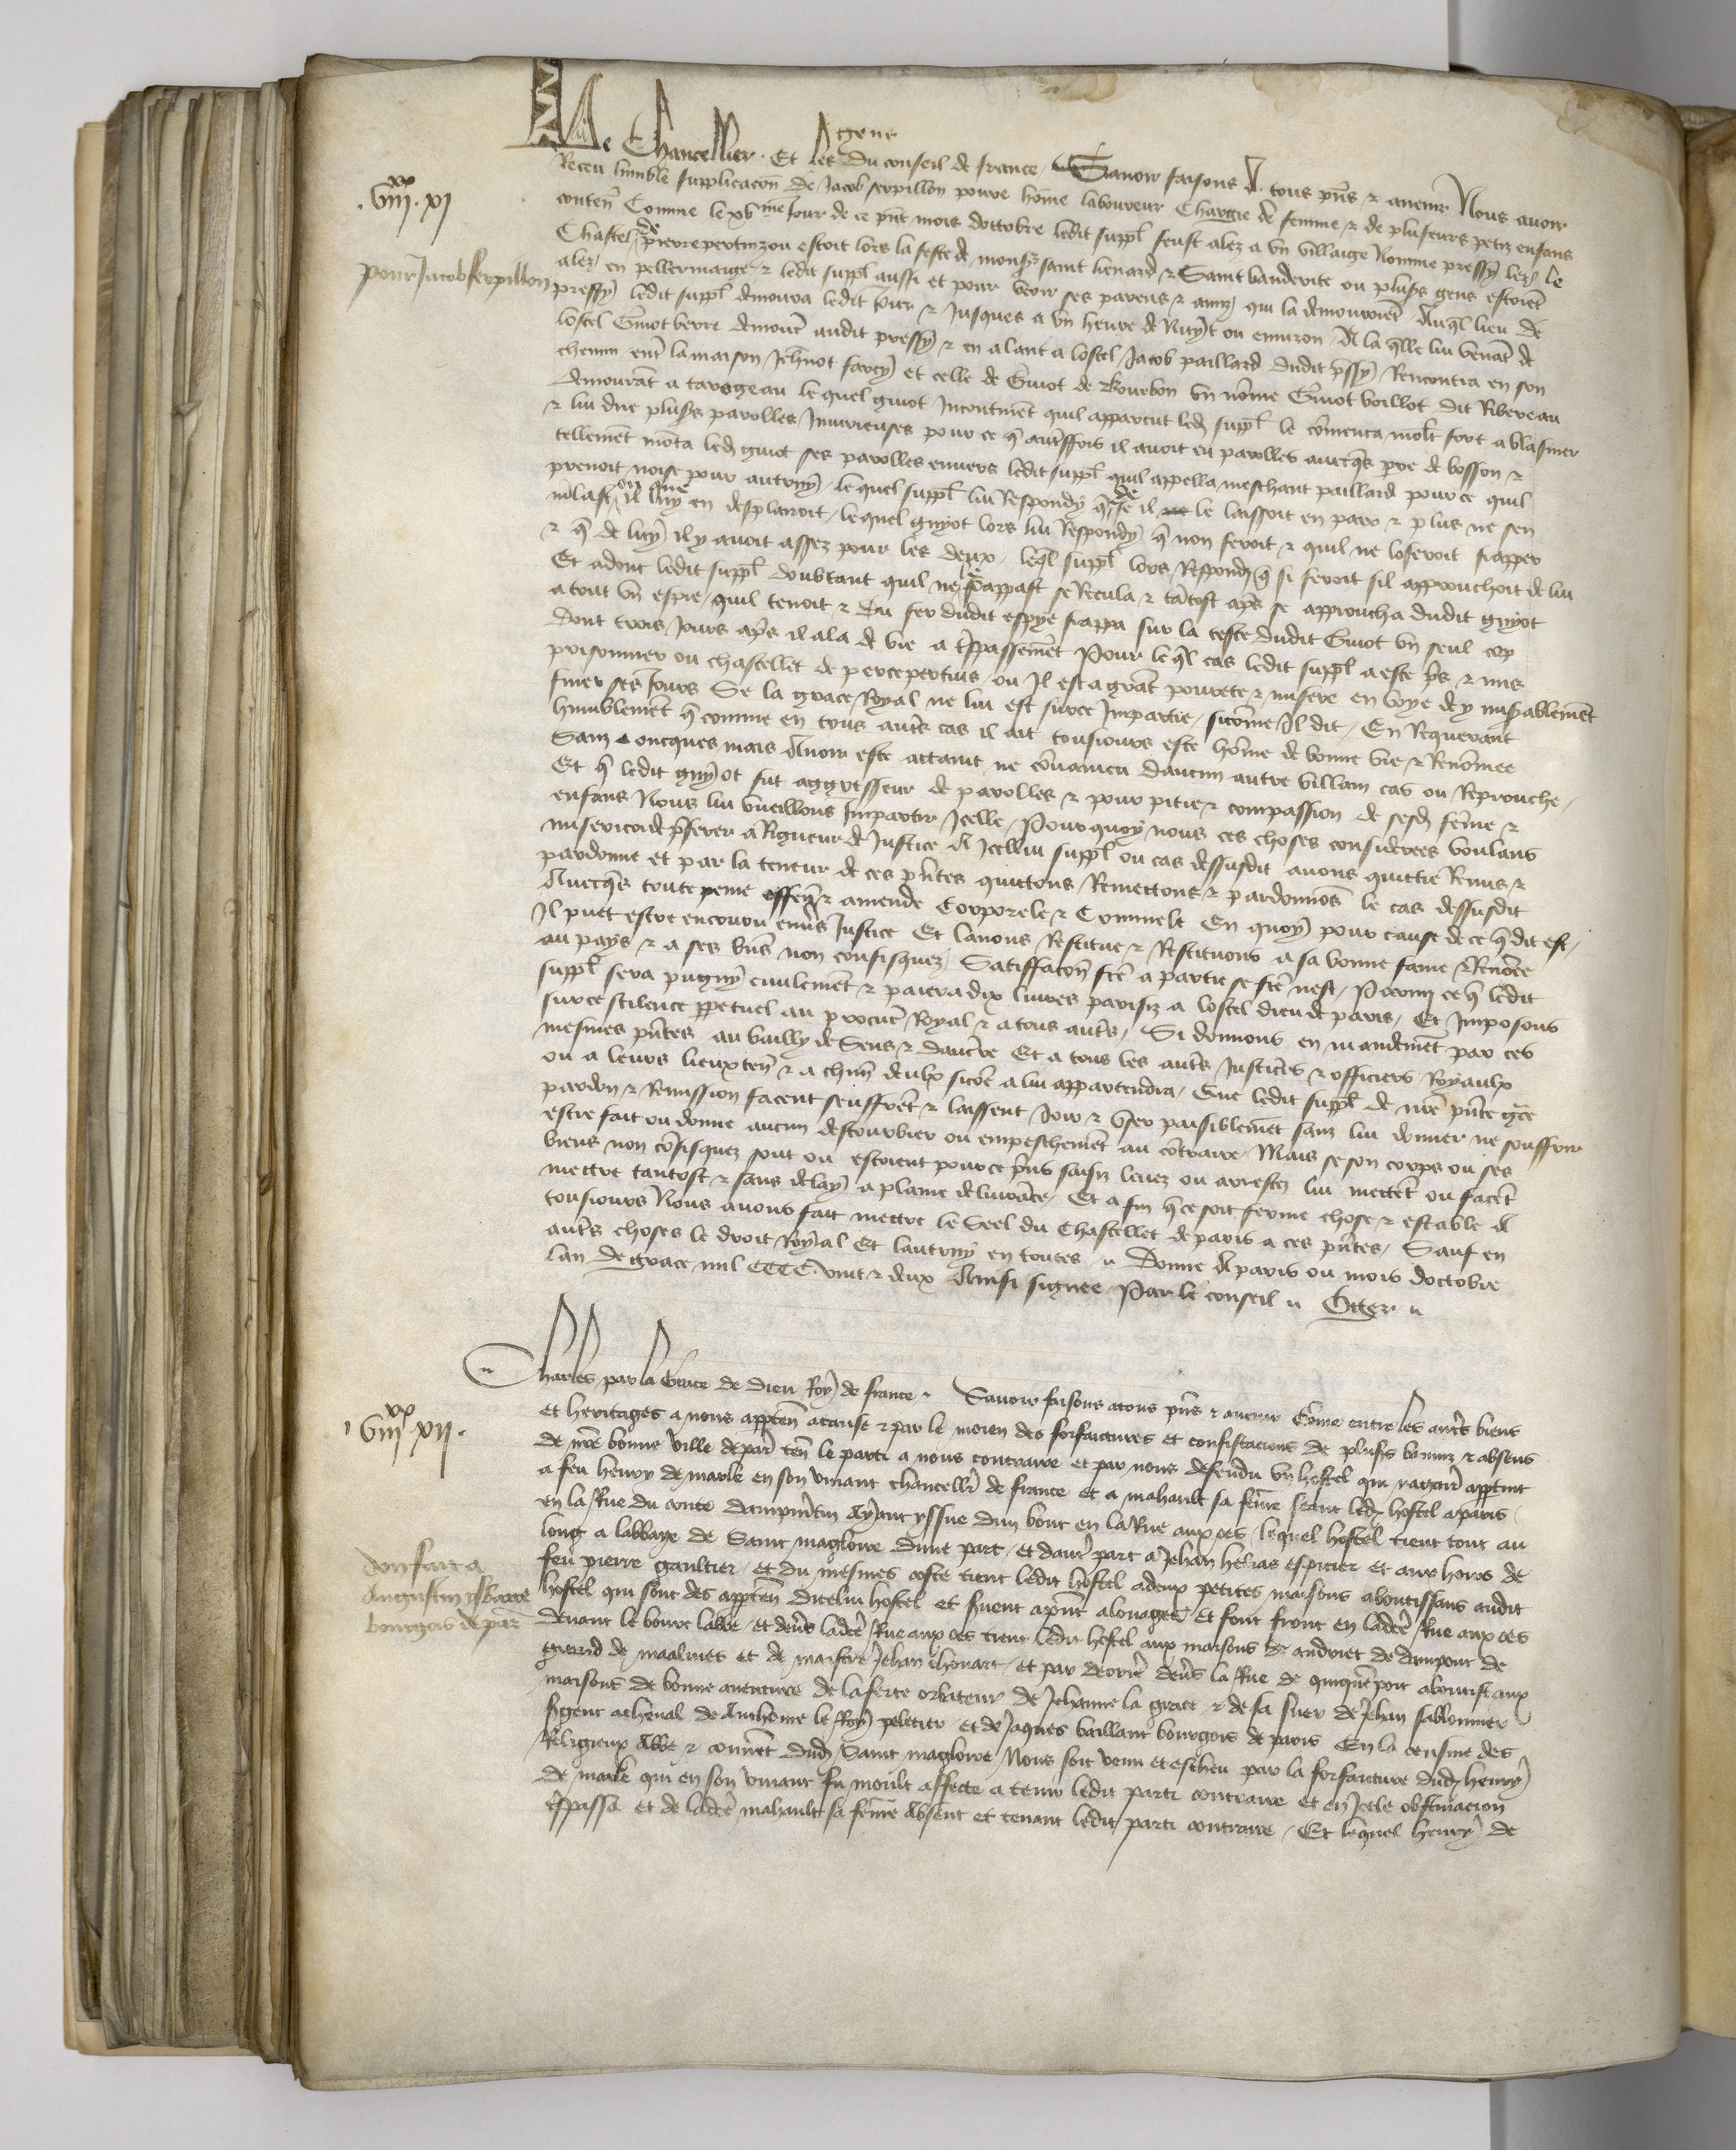 Le Chancellier. Et les gens du conseil de france. Savoir faisons A tous pñs & avenir Nous avoir
.VIIIxx.XI
Receu humble supplicacoñ De Jacob serpillon povre home laboureur Chargie de femme & de pluseurs petiz enfans
conteñ Comme le xvme Jour de ce pñt mois doctobre ledit suppl feust alez a un villaige Nomme pressy lez le
Chastel de pierrepertuz ou estoit lors la feste de monsr saint lienard & Saint banderite ou plusrs gens estoiet
pour Jacob serpillon
alez en pellerinaige & ledit suppl aussi et pour veoir ses parens & amiz qui la demouroiet Auql lieu de
pressy ledit suppl demoura ledit Jour & Jusques a un heure de Nuyt ou environ A la qlle lui venat de
lostel Guiot berri demourt audit pressy & en alant a lostel Jacob paillard dudit pssy Rencontra en son
chemin entr la maison Jehnot farcy et celle de Guiot de Bourbon un nome Guiot boillot dit Ribereau
demourat a tarogeau lequel guiot Incontinet quil apparcut led suppl le comenca molt fort a blasmer
& lui dire plusrs parolles Iniurieuses pour ce q autreffois il avoit eu parolles avecqs pre de bosson &
tellement mota led guiot ses parolles envers ledit suppl quil appella meschant paillard pour ce quil
prenoit noise pour autruy. lequel suppl lui Respondy q se il le laissoit en paix & plus ne sen
mlast ou que il luy en desplairoit. lequel guyot lors lui Respondy q non feroit & quil ne loseroit frapper
& q de luy il y avoit assez pour les deux. leql suppl lors Respondy q si feroit sil approuchoit de lui
Et adonc ledit suppl doubtant quil ne le frappast se Recula & tatost aps se approucha dudit guyot
atout un espie quil tenoit & du fer dudit espye frappa sur la teste dudit Guiot un seul cop
dont trois Jours aps il ala de vie a trspassemet Pour leql cas ledit suppl a este prs & mis
prisonnier ou chastellet de percepertuis ou Il est a grat povrete & misere en voye dy misrablemet
finer ses Jours Se la grace Royal ne lui est surce Impartie. sicome Il dit. En Requerant
humblemet q comme en tous autrs cas il ait tousiours este home de bonne vie & Renomee
Sanz oncques mais Avoir este attaint ne covaincu daucun autre villain cas ou Reprouche.
Et q ledit guyot fut aggresseur de parolles & pour pitie & compassion de sesd feme &
enfans Nous lui vueillons Impartir Icelle. Pourquoy nous ces choses considerees voulans
misericorde pferer a Rigueur de Justice A Icellui suppl ou cas dessusdit avons quittie Remis &
pardonne et par la teneur de ces pntes quittons Remettons & pardonnos le cas dessusdit
Avecqs toute peine offense & amende Corporele & Criminele En quoy pour cause de ce q dit est.
Il puet estre encouru envs Justice Et lavons Restitue & Restituons a sa bonne fame & Renomee
au pays & a ses bns non confisquez. Satiffacon fte a partie se fte nest. Parmi ce q ledit
suppl sera pugny civilemet & paiera dix livres parisiz a lostel dieu de paris. Et Imposons
surce scilence ppetuel au procur Royal & a tous autrs. Si donnons en mandemet par ces
mesmes pntes au bailly de Sens & daucrre Et a tous les autrs Justicrs & officiers Royaulx
ou a leurs lieuxten & a chun deulx sicome a lui appartendra. Que ledit suppl de nre pnte gce
pardon & Remission facent seuffret & laissent Joir & user paisiblemet sanz lui donner ne souffrir
estre fait ou donne aucun destourbier ou empeschemet au cotraire. Mais se son corps ou ses
biens non cofisquez sont ou estoient pour ce prins saisiz levez ou arrestez lui mettet ou facet
mettre tantost & sans delay a plaine delivrace. Et a fin q ce soit ferme chose & estable A
tousiours Nous avons fait mettre le Seel du Chastellet de paris a ces pntes. Sauf en
autrs choses le droit Royal Et lautruy en toutes. Donne A paris ou mois doctobre
lan de grace mil CCCC. vint & deux Ainsi signee Par le conseil. Oger
Charles par la Grace de Dieu Roy de france. Savoir faisons a tous pns & avenir Come entre les autrs biens
.VIIIxx.XII.
et heritages a nous appten a cause & par le moien des forfaictures et confiscacions de plusrs banniz & absens
de nre bonne ville de par ten le parti a nous contraire et par nous defendu un hostel qui nagair apptint
a feu henry de marle en son vivant chancellr de france et a mahault sa feme seant led hostel a paris
en la Rue du conte dampmartin Ayant yssue dun bout en la Rue aux oes. lequel hostel tient tout au
long a labbaye de Saint magloire dune part. et daut part a Jehan helias espicier et aux hoirs de
don fait a
Augustin ysbarre
bourgois de par
feu pierre gaultier. et du mesmes coste tient ledit hostel a deux petites maisons aboutissans audit
hostel qui sont des appten dicelui hostel et furent apnt a louages. Et font front en ladce Rue aux oes
devant le bourc labbe. et devs ladce Rue aux oes tient ledit hostel aux maisons de andriet de dampont de
guerrid de maalines et de maistre Jehan chouart. et par derrir devs la Rue de quiquepoit aboutist aux
maisons de bonne aventure de la ferte orbateur de Jehanne la grace & de sa suer de Jehan sablonnier
sgent a cheval de Anthoine le Roy peletier. et de Jaques vaillant bourgois de paris En la censive des
Religieux Abbe & couvet dud Saint magloire Nous soit venu et escheu par la forfaiture dud henry
de marle qui en son vivant fu moult affecte a tenir ledit parti contraire et en Icele obstinacion
trspassa et de ladce mahault sa feme Absent et tenant ledit parti contraire. Et lequel henry de